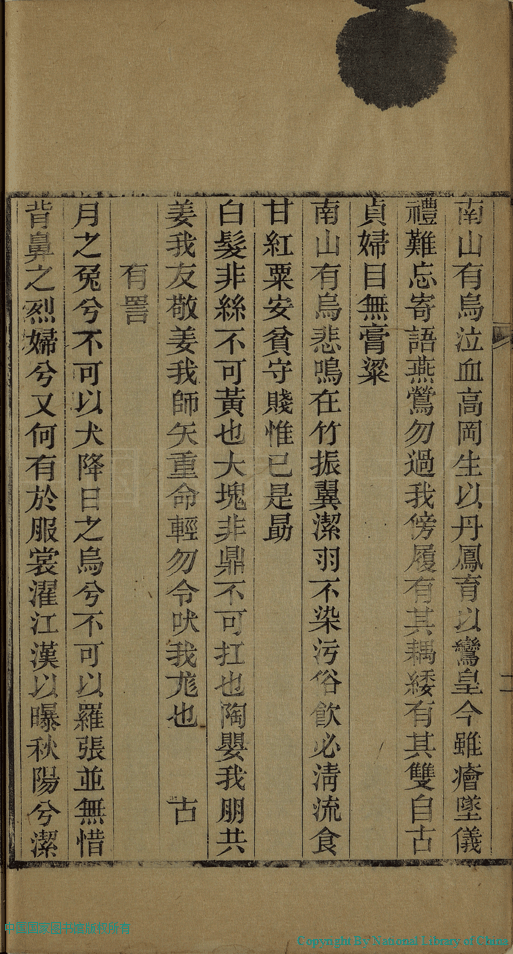 南山有烏泣血高岡生以丹鳳育以鸞皇今雖㾎墜儀
禮難忘寄語燕鶯勿過我傍履有其耦緌有其雙自古
貞婦目無膏粱
南山有烏悲鳴在竹振翼潔羽不染污俗飲必清流食
甘紅粟安貧守賤惟已是勗
白髮非絲不可黃也大塊非鼎不可扛也陶嬰我朋共
姜我友敬姜我師矢重命輕勿令吠我尨也 古
有詈
月之兔兮不可以犬降日之烏兮不可以羅張並無惜
背鼻之烈婦兮又何有於服裳濯江漢以曝秋陽兮潔
二
Copyright By National Library of China